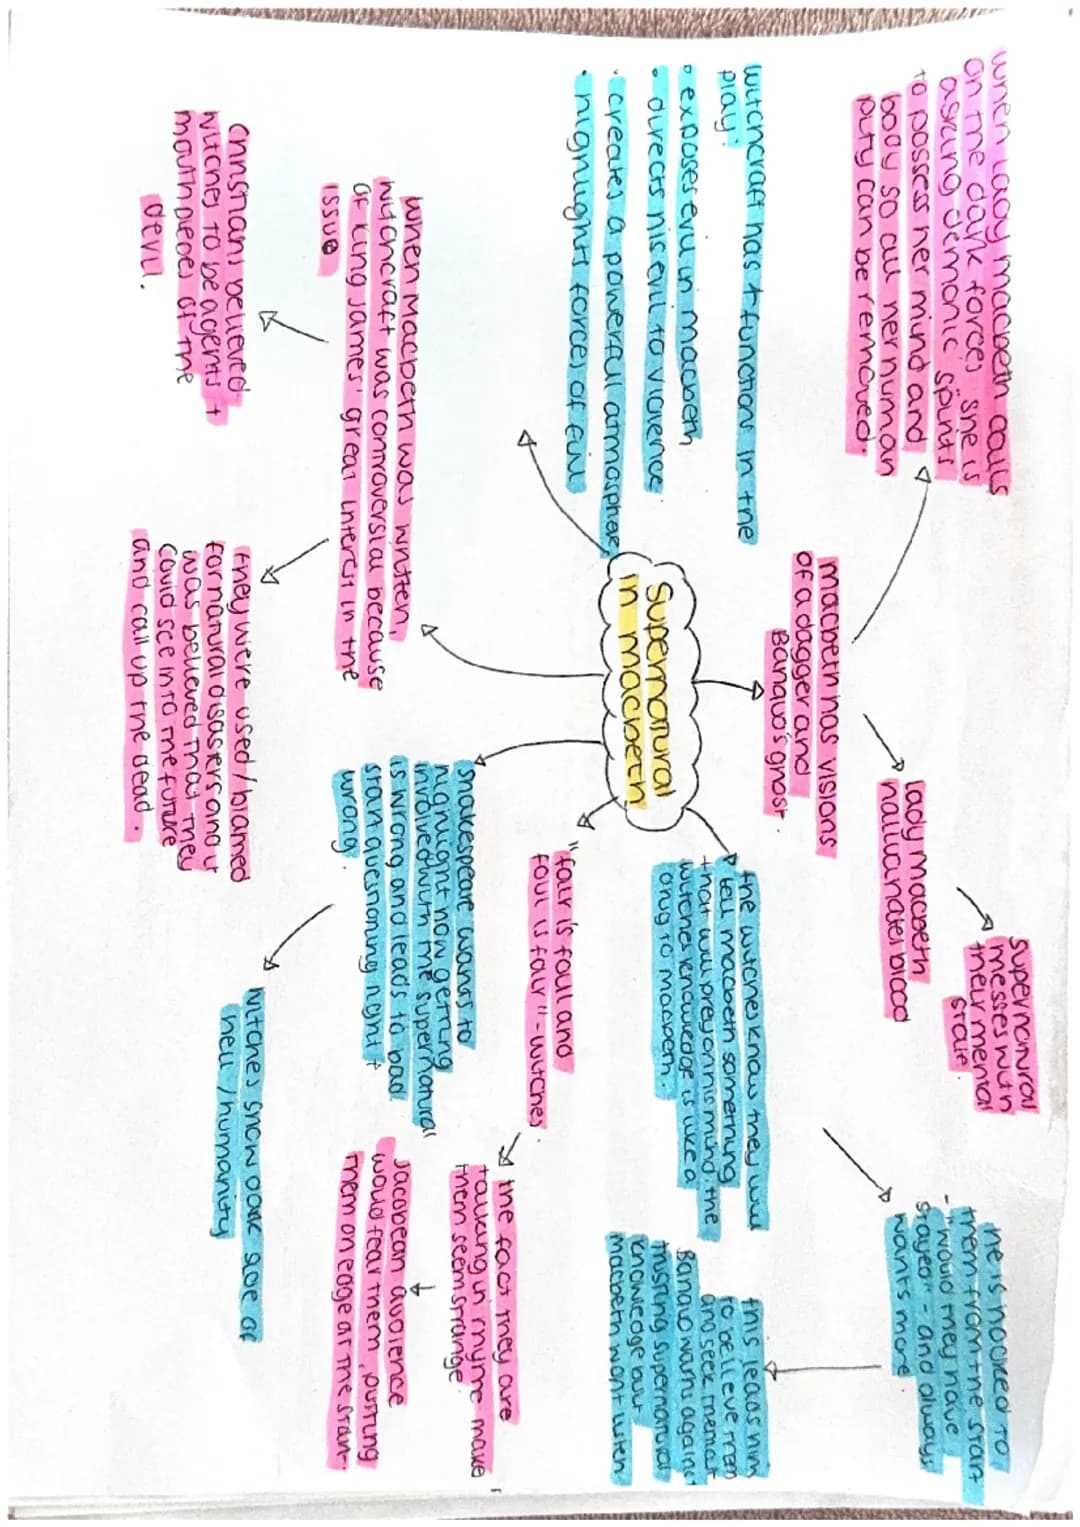 Supernatural
in macbeth
when lady macbeth calls
on the dark forces, she is
asking demonic spirits
to possess her mind and
body so all her human
pity can be removed.
macbeth has visions
of a dagger and
Banquo's ghost.
lady macbeth
hallucinates blood
supernatural
messes with
their mental
state.
witchcraft has 4 functions in the
play:
• exposes evil in macbeth
• directs his evil to violence
• creates a powerfull atmosphere
• highlight forces of evil
the witches know they will
tell macbeth something
that will prey on his mind. the
witches knowledge is like a
drug to macbeth.
he is hooked to
them from the start
- "would they have
stayed" - and always
wants more
this leads him
to believe them
and seek them out
Banquo warns against
trusting supernatural
knowledge but
macbeth wont listen
When Macbeth was written,
witchcraft was controversial because
of king James' great interest in the
issue
Christians believed
witches to be agents +
mouthpieces of the
devil.
they were used/blamed
for natural disasters and it
was believed that they
could see into the future
and call up the dead.
Shakespeare wants to
highlight how getting
involved with the supernatural
is wrong and leads to bad
start questioning right +
wrong.
witches show dark side of
hell/humanity
"fair is foul and
foul is fair" - witches
the fact they are
talking in rhyme make
them seem strange.
Jacobean audience
would fear them, putting
them on edge at the start.